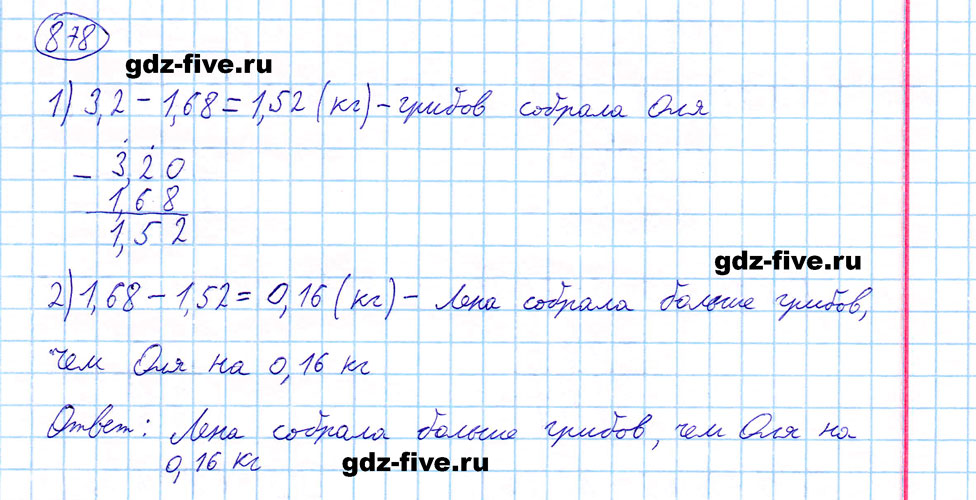 878
gdz-five.ru
1) 3,2 - 1,68 = 1,52 (кг) - грибов собрала Оля
- 3,20
1,68
1,52
gdz-five.ru
2) 1,68 - 1,52 = 0,16 (кг) - Лена собрала больше грибов,
чем Оля на 0,16 кг
Ответ: Лена собрала больше грибов, чем Оля на
0,16 кг
gdz-five.ru